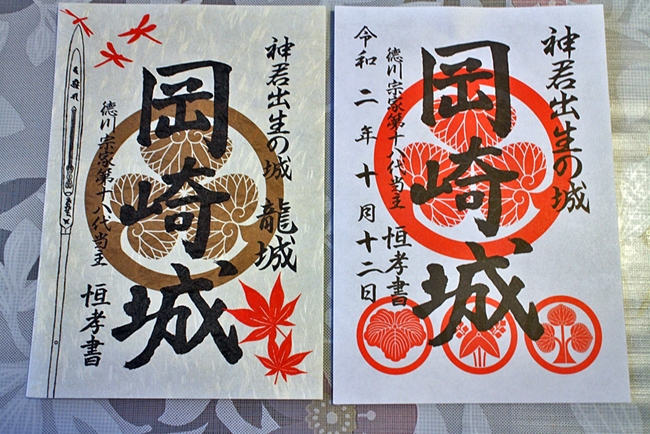 神君出生の城 龍城
岡崎城
徳川宗家第十八代当主 恒孝書
神君出生の城
岡崎城
徳川宗家第十八代当主 恒孝書
令和二年十月十二日